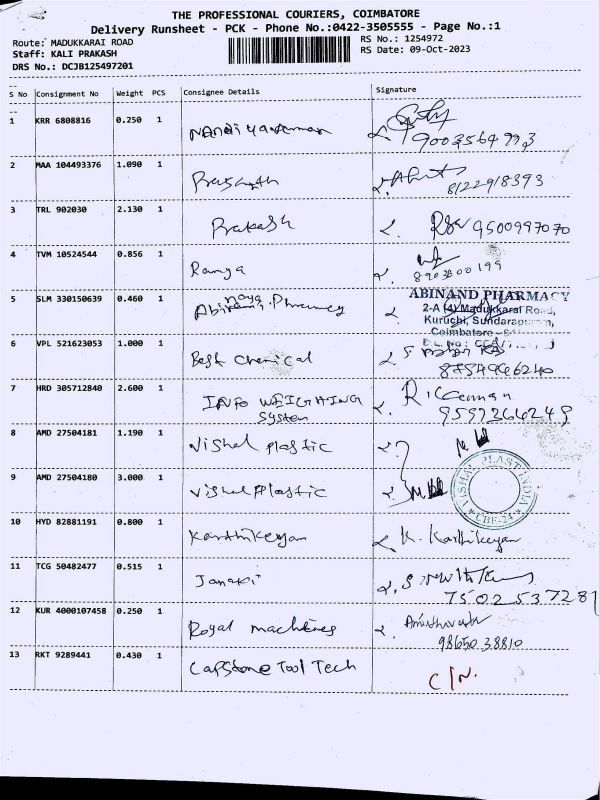 THE PROFESSIONAL COURIERS, COIMBATORE
Delivery Runsheet - PCK - Phone No.:0422-3505555 - Page No.:1
Route: MADUKKARAI ROAD
RS No.: 1254972
Staff: KALI PRAKASH
RS Date: 09-Oct-2023
DRS No.: DCJB125497201
S No Consignment No Weight PCS Consignee Details Signature
1 KRR 6808816 0.250 1
9003564993
2 MAA 104493376 1.090 1 Prashanth
8122918393
3 TRL 902030 2.130 1 Prakash 9500997070
4 TVM 10524544 0.856 1 Ramya
5 SLM 330150639 0.460 1
ABINAND PHARMACY
2-A (4) Madukkarai Road,
Kuruchi, Sundarapuram,
Coimbatore
6 VPL 521623053 1.000 1 Best Chemical
7 HRD 305712840 2.600 1 INFO WEIGHING
System
8 AMD 27504181 1.190 1 Vishal plastic
9 AMD 27504180 3.000 1 Vishal plastic
VISHAL PLAST INDIA
CBE-24
10 HYD 82881191 0.800 1 Karthikeyan K. Karthikeyan
11 TCG 50482477 0.515 1 Janaki
7502537281
12 KUR 4000107458 0.250 1 Royal machines
98650 38810
13 RKT 9289441 0.430 1 Capstone Tool Tech
C/N.